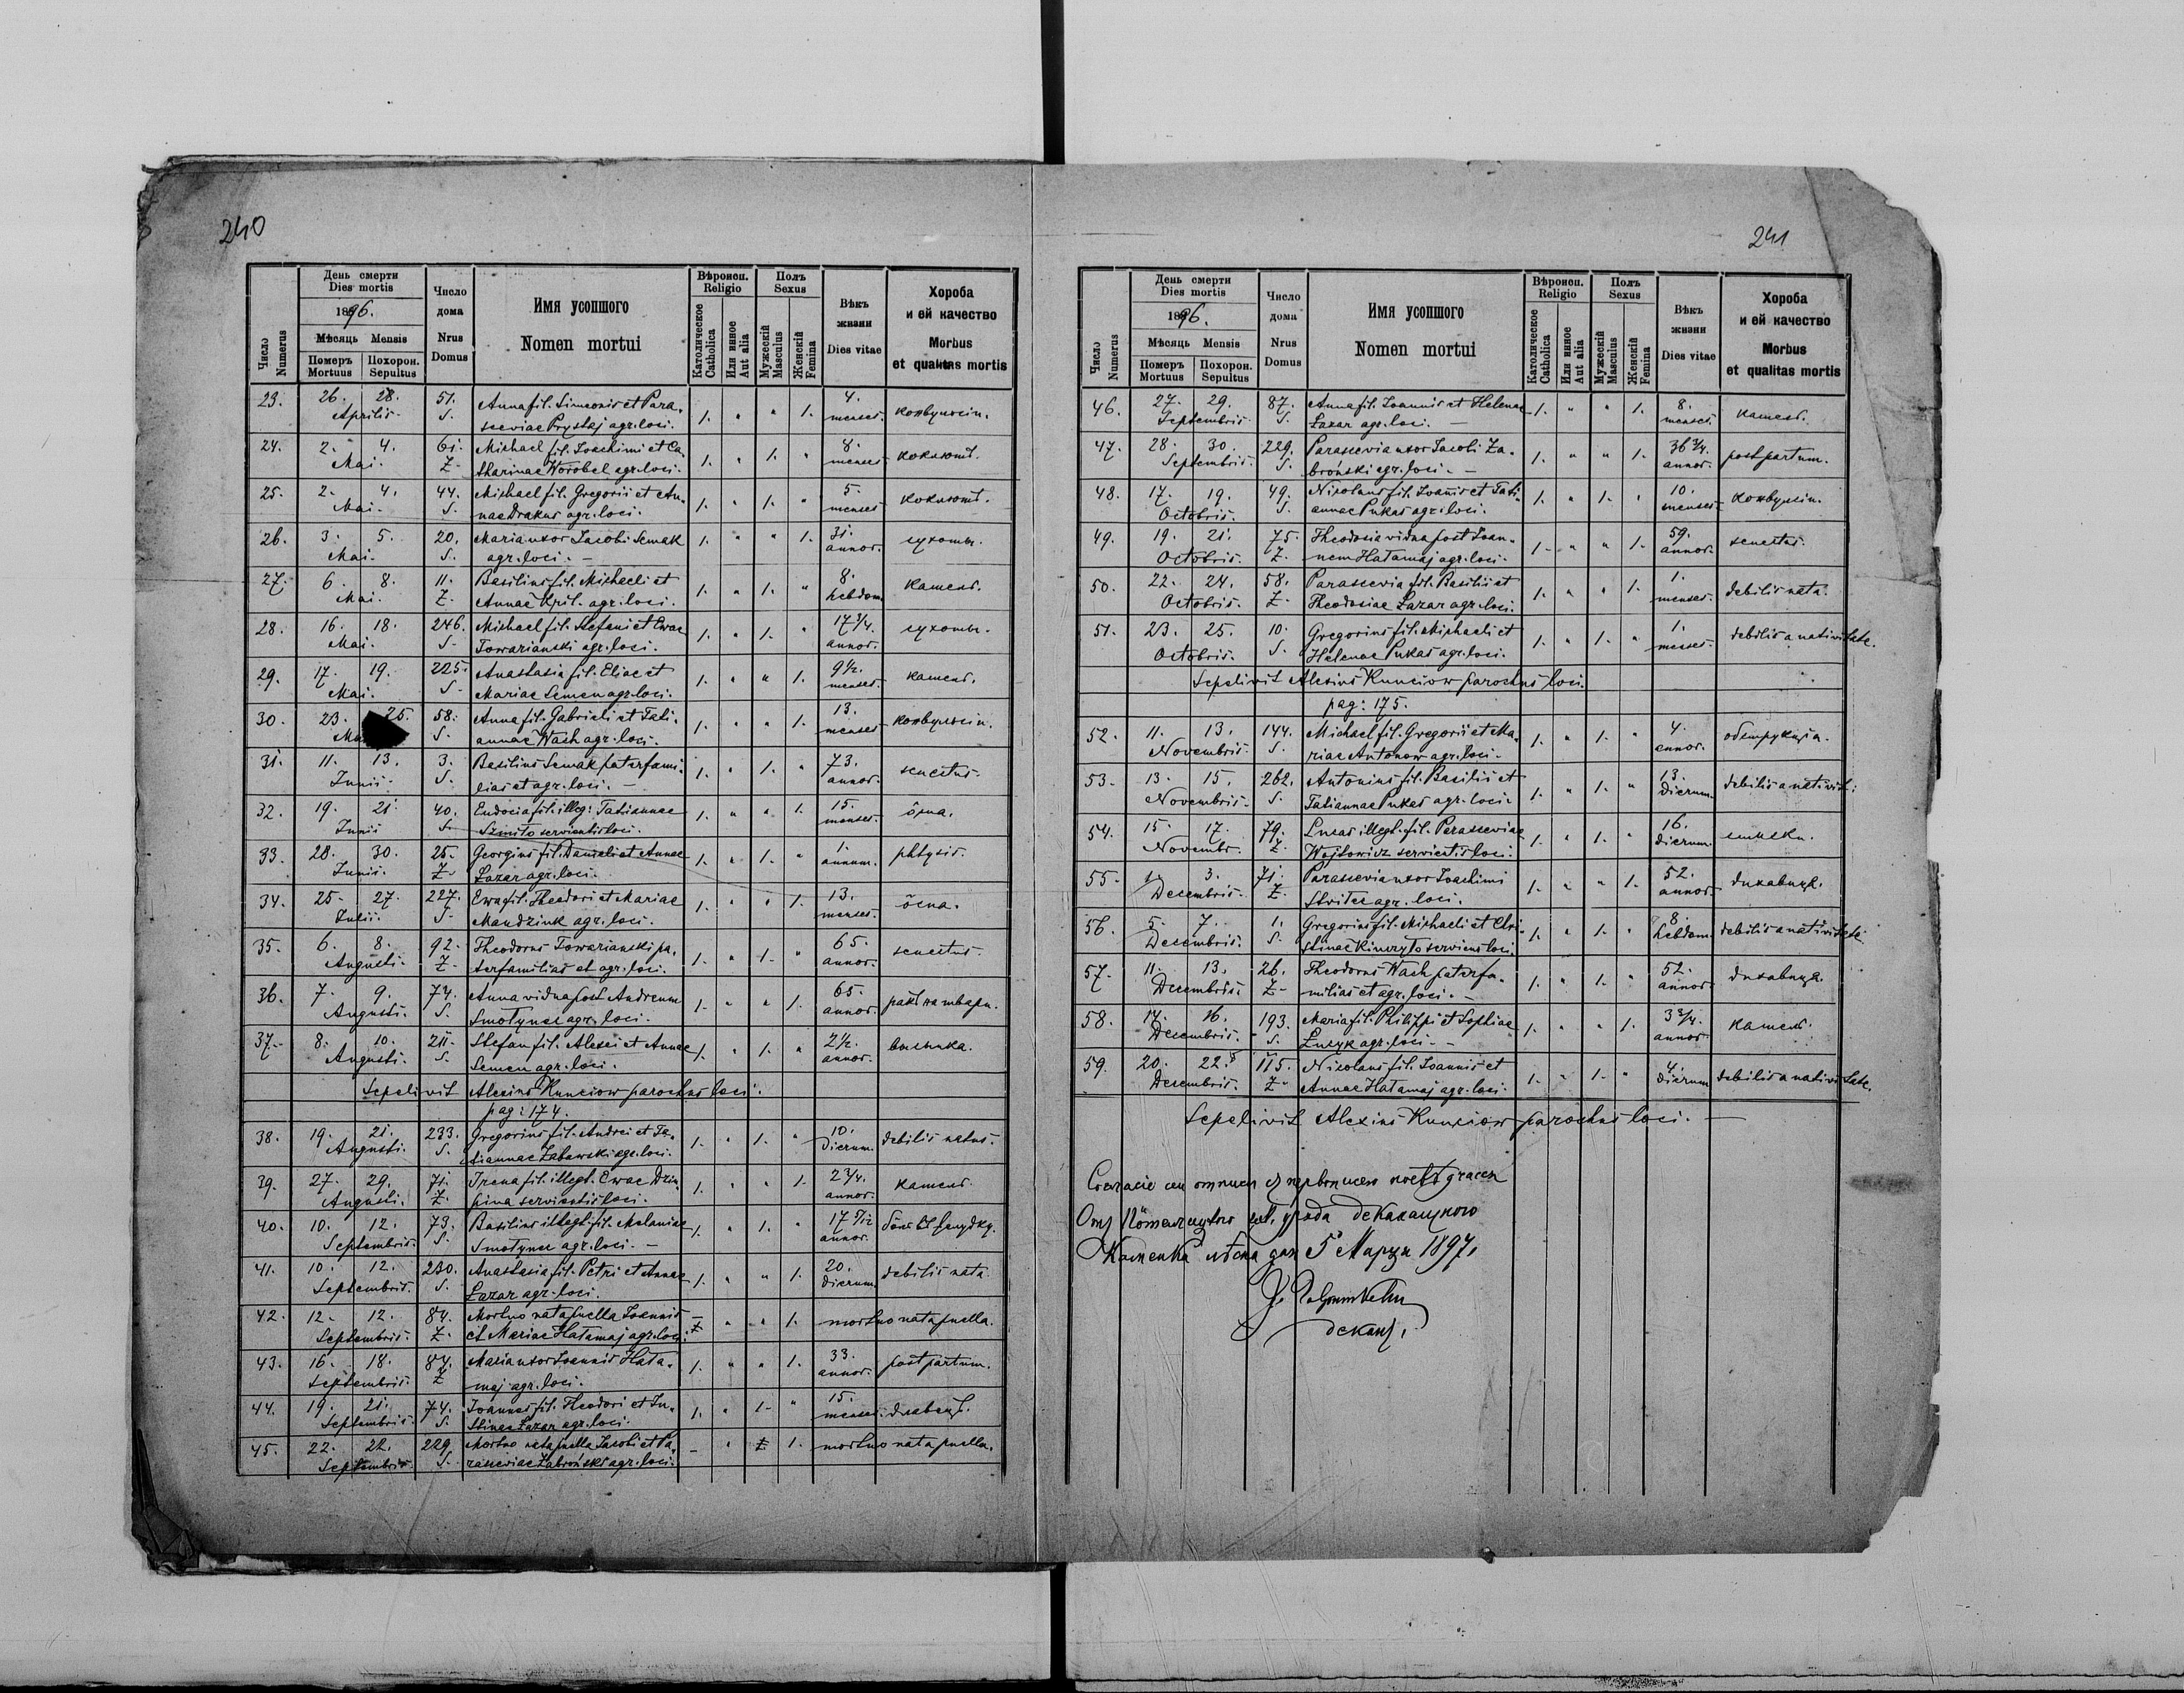 240
День смерти
Dies mortis
1896.
Мѣсяць Mensis
Число
Numerus
Померъ
Mortuus
Похорон.
Sepultus
Число
дома
Nrus
Domus
Имя усопшого
Nomen mortui
Вѣроисп.
Religio
Католическое
Catholica
Или инное
Aut alia
Полъ
Sexus
Мужескій
Masculus
Женскій
Femina
Вѣкъ
жизни
Dies vitae
Хороба
и ей качество
Morbus
et qualitas mortis
23. 26. 28. Aprilis. 51. S. Anna fil. Simeonis et Para-
sceviae Prystaj agr. loci. 1. " " 1. 4. menses.
24. 2. 4. Mai. 61. Z. Michael fil. Joachimi et Ca-
tharinae Worobel agr. loci. 1. " 1. " 8. menses коклюшъ.
25. 2. 4. Mai. 44. S. Michael fil. Gregorii et An-
nae Drakus agr. loci. 1. " 1. " 5. menses коклюшъ.
26. 3. 5. Mai. 20. S. Maria uxor Jacobi Semak
agr. loci. – 1. " " 1. 31. annor. сухоты.
27. 6. 8. Mai. 11. Z. Basilius fil. Michaeli et
Annae Kril. agr. loci. 1. " 1. " 8. hebdom. камень.
28. 16. 18. Mai. 246. S. Michael fil. Stefani et Ewae
Towarianski agr. loci. 1. " 1. " 17 3/4. annor. сухоты.
29. 17. 19. Mai. 225. S. Anastasia fil. Eliae et
Mariae Semen agr. loci. 1. " " 1. 9 1/2. menses. камень.
30. 23. 25. 58. S. Anna fil. Gabrieli et Tati-
annae Wach agr. loci. 1. " " 1. 13. menses
31. 11. 13. Junii. 3. S. Basilius Semak paterfami-
lias et agr. loci. – 1. " 1. " 73. annor. senectus.
32. 19. 21. Junii 40. S. Eudocia fil. illeg. Tatiannae
Szmiło servientis loci. 1. " " 1. 15. menses. ôспа.
33. 28. 30. Junii. 25. Z. Georgius fil. Danieli et Annae
Łazar agr. loci. 1. " 1. " 1. annum. phtysis.
34. 25. 27. Julii. 227. S. Ewa fil. Theodori et Mariae
Mandziuk agr. loci. 1. " " 1. 13. menses. ôспа.
35. 6. 8. Augusti. 92. Z. Theodorus Towarianski pa-
terfamilias et agr. loci. 1. " 1. " 65. annor. senectus.
36. 7. 9. Augusti. 74. S. Anna vidua post Andream
Smotynec agr. loci. 1. " " 1. 65. annor. ракъ на твари.
37. 8. 10. Augusti. 211. S. Stefan fil. Alexii et Annae
Semen agr. loci. 1. " 1. " 2 1/2. annor. высыпка.
Sepelivit Alexius Kunciow parochus loci.
pag: 174.
38. 19. 21. Augusti. 233. S. Gregorius fil. Andrei et Ta-
tiannae Zabawski agr. loci. 1. " 1. " 10. dierum. debilis natus.
39. 27. 29. Augusti. 71. Z. Irena fil. illegt. Ewae Dziu-
pina servientis loci. 1. " " 1. 2 3/4. annor. камень.
40. 10. 12. Septembris. 73. S. Basilius illegt. fil. Melaniae
Smotynec agr. loci. – 1. " 1. " 17 5/12 annor.
41. 10. 12. Septembris. 230. S. Anastasia fil. Petri et Annae
Łazar agr. loci. 1. " " 1. 20. dierum. debilis nata.
42. 12. 12. Septembris. 84. Z. Mortuo nata puella Joannis
et Mariae Hałamaj agr. loci. – " " 1. mortuo nata puella.
43. 16. 18. Septembris. 84. Z Maria uxor Joannis Hała-
maj agr. loci. 1. " " 1. 33. annor. post partum.
44. 19. 21. Septembris. 74. S. Joannes fil. Theodori et Ju-
stinae Łazar agr. loci. 1. " 1. " 15. menses. длавецъ.
45. 22. 22. Septembris 229. S. Mortuo nata puella Jacobi et Pa-
rasceviae Zabroński agr. loci. – " 1. mortuo nata puella.
241
День смерти
Dies mortis
1896.
Мѣсяць Mensis
Число
Numerus
Померъ
Mortuus
Похорон.
Sepultus
Число
дома
Nrus
Domus
Имя усопшого
Nomen mortui
Вѣроисп.
Religio
Католическое
Catholica
Или инное
Aut alia
Полъ
Sexus
Мужескій
Masculus
Женскій
Femina
Вѣкъ
жизни
Dies vitae
Хороба
и ей качество
Morbus
et qualitas mortis
46. 27. 29. Septembris 87. S. Anna fil. Joannis et Helenae
Łazar agr. loci. – 1. " " 1. 8. menses. камень.
47. 28. 30. Septembris. 229. S. Parascevia uxor Jacobi Za-
broński agr. loci. – 1. " " 1. 36 3/4. annor. post partum.
48. 17. 19. Octobris. 49. S. Nicolaus fil. Joannis et Tati-
annae Pukas agr. loci. 1. " 1. " 10. menses.
49. 19. 21. Octobris. 75. Z. Theodosia vidua post Joan-
nem Hałamaj agr. loci. 1. " " 1. 59. annor. senectus.
50. 22. 24. Octobris. 58. Z. Parascevia fil. Basilii et
Theodosiae Łazar agr. loci. 1. " " 1. 1. menses. debilis nata.
51. 23. 25. Octobris. 10. S. Gregorius fil. Michaeli et
Helenae Pukas agr. loci. 1. " 1. " 1. menses. debilis a nativitate.
Sepelivit Alexius Kunciow parochus loci.
pag: 175.
52. 11. 13. Novembris. 144. S. Michael fil. Gregorii et Ma-
riae Antonow agr. loci. 1. " 1. " 4. annor. обструкція.
53. 13. 15. Novembris. 262. S. Antonius fil. Basilii et
Tatiannae Pukas agr. loci. 1. " 1. " 13. dierum. debilis a nativit.
54. 15. 17. Novembr. 79. Z. Lucas illegt. fil. Parasceviae
Wojtowicz servientis loci. 1. " 1. " 16. dierum.
55. 1. 3. Decembris. 71. Z. Parascevia uxor Joachimi
agr. loci. 1. " " 1. 52. annor. дихавица.
56. 5. 7. Decembris. 1. S. Gregorius fil. Michaeli et Chri-
stinae serviens loci. 1. " 1. " 8. hebdom. debilis a nativitate.
57. 11. 13. Decembris. 26. Z. Theodorus Wach paterfa-
milias et agr. loci. – 1. " 1. " 52. annor. дихавица.
58. 14. 16. Decembris. 193. S. Maria fil. Philippi et Sophiae
Łucyk agr. loci. – 1. " " 1. 3 3/4. annor. камень.
59. 20. 22. Decembris. 115. Z. Nicolaus fil. Joannis et
Annae Hałamaj agr. loci. 1. " 1. " 4. dierum debilis a nativitate.
Sepelivit Alexius Kunciow parochus loci. –
уряда деканцкого
Каменка дня 5 Марця 1897.
деканъ.